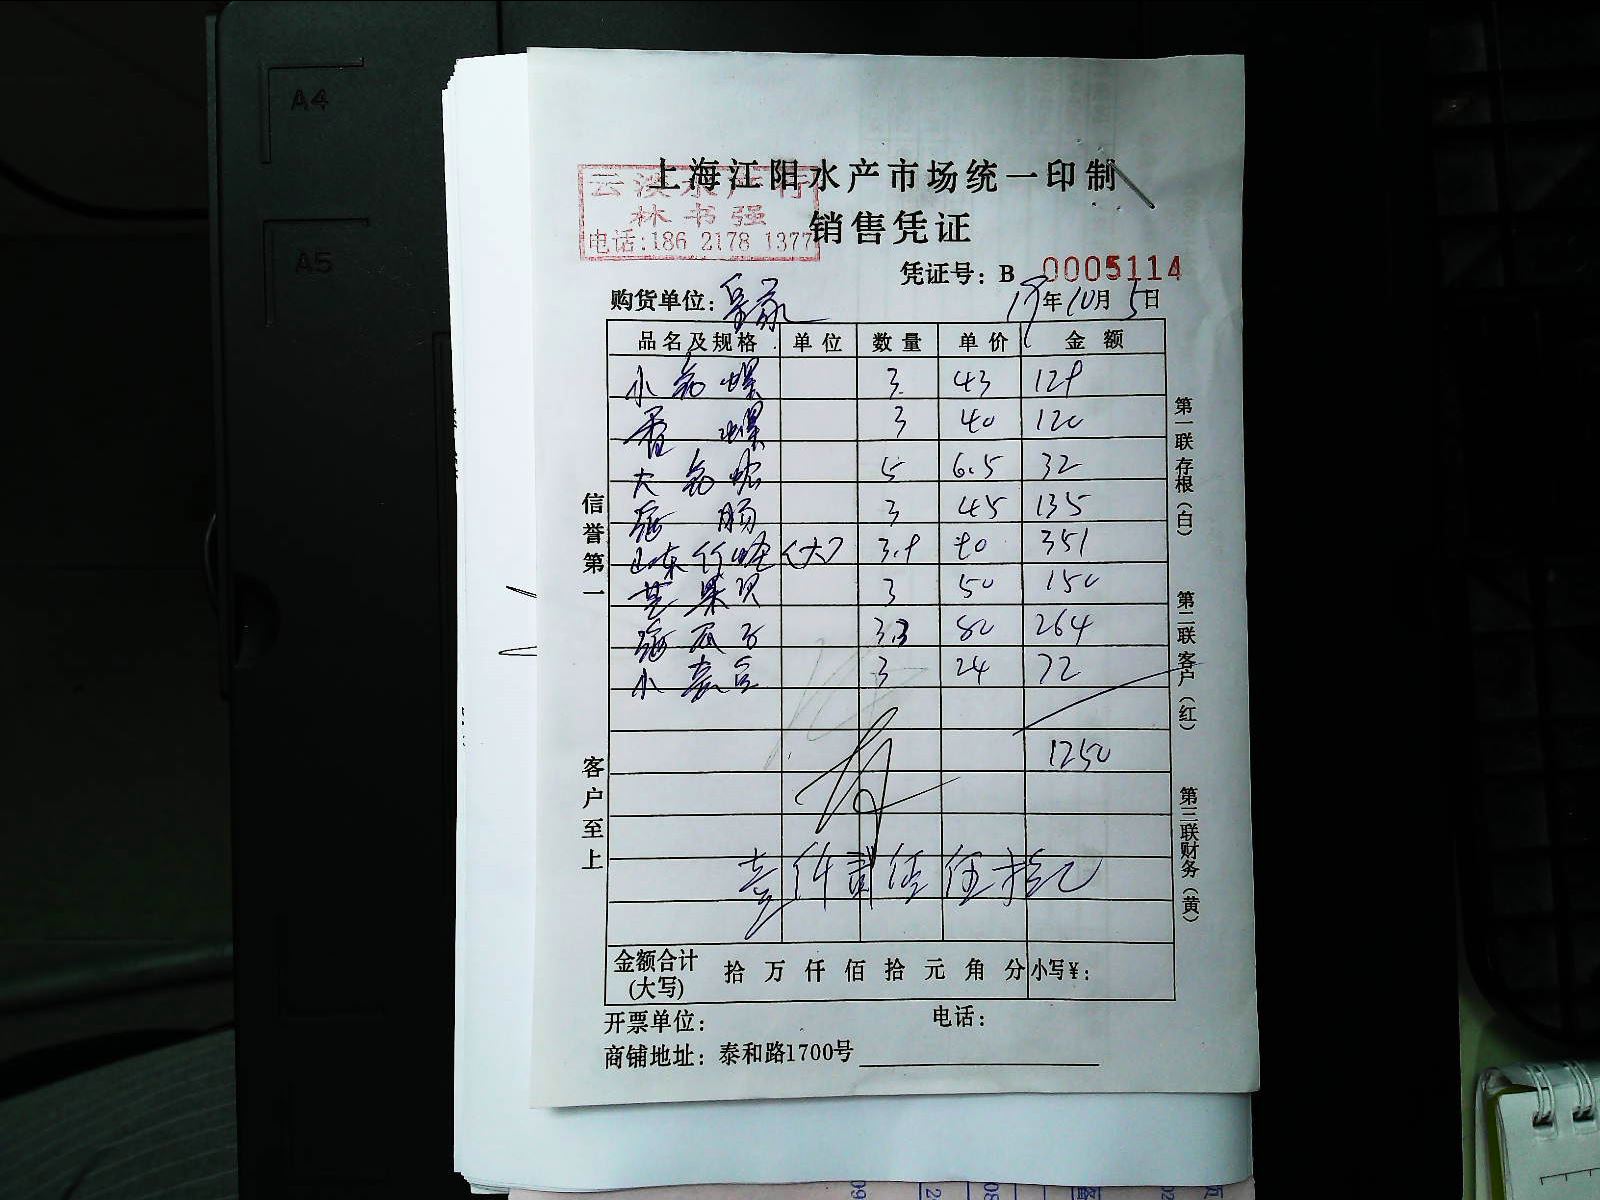 A4
A5
上海江阳水产市场统一印制
云溪水产行
林书强
电话:186 2178 1377
销售凭证
凭证号: B 0005114
购货单位:
19年10月5日
品名及规格 单位 数量 单价 金额
小 螺 3 43 129
香螺 3 40 120
大 蛤 5 6.5 32
海肠 3 45 135
山东竹蛏(大) 3.9 90 351
芒果贝 3 50 150
海瓜子 3.3 80 264
小 3 24 72
1250
壹仟贰佰伍拾元
信誉第一
客户至上
第一联存根(白)
第二联客户(红)
第三联财务(黄)
金额合计(大写) 拾 万 仟 佰 拾 元 角 分 小写¥:
开票单位: 电话:
商铺地址: 泰和路1700号